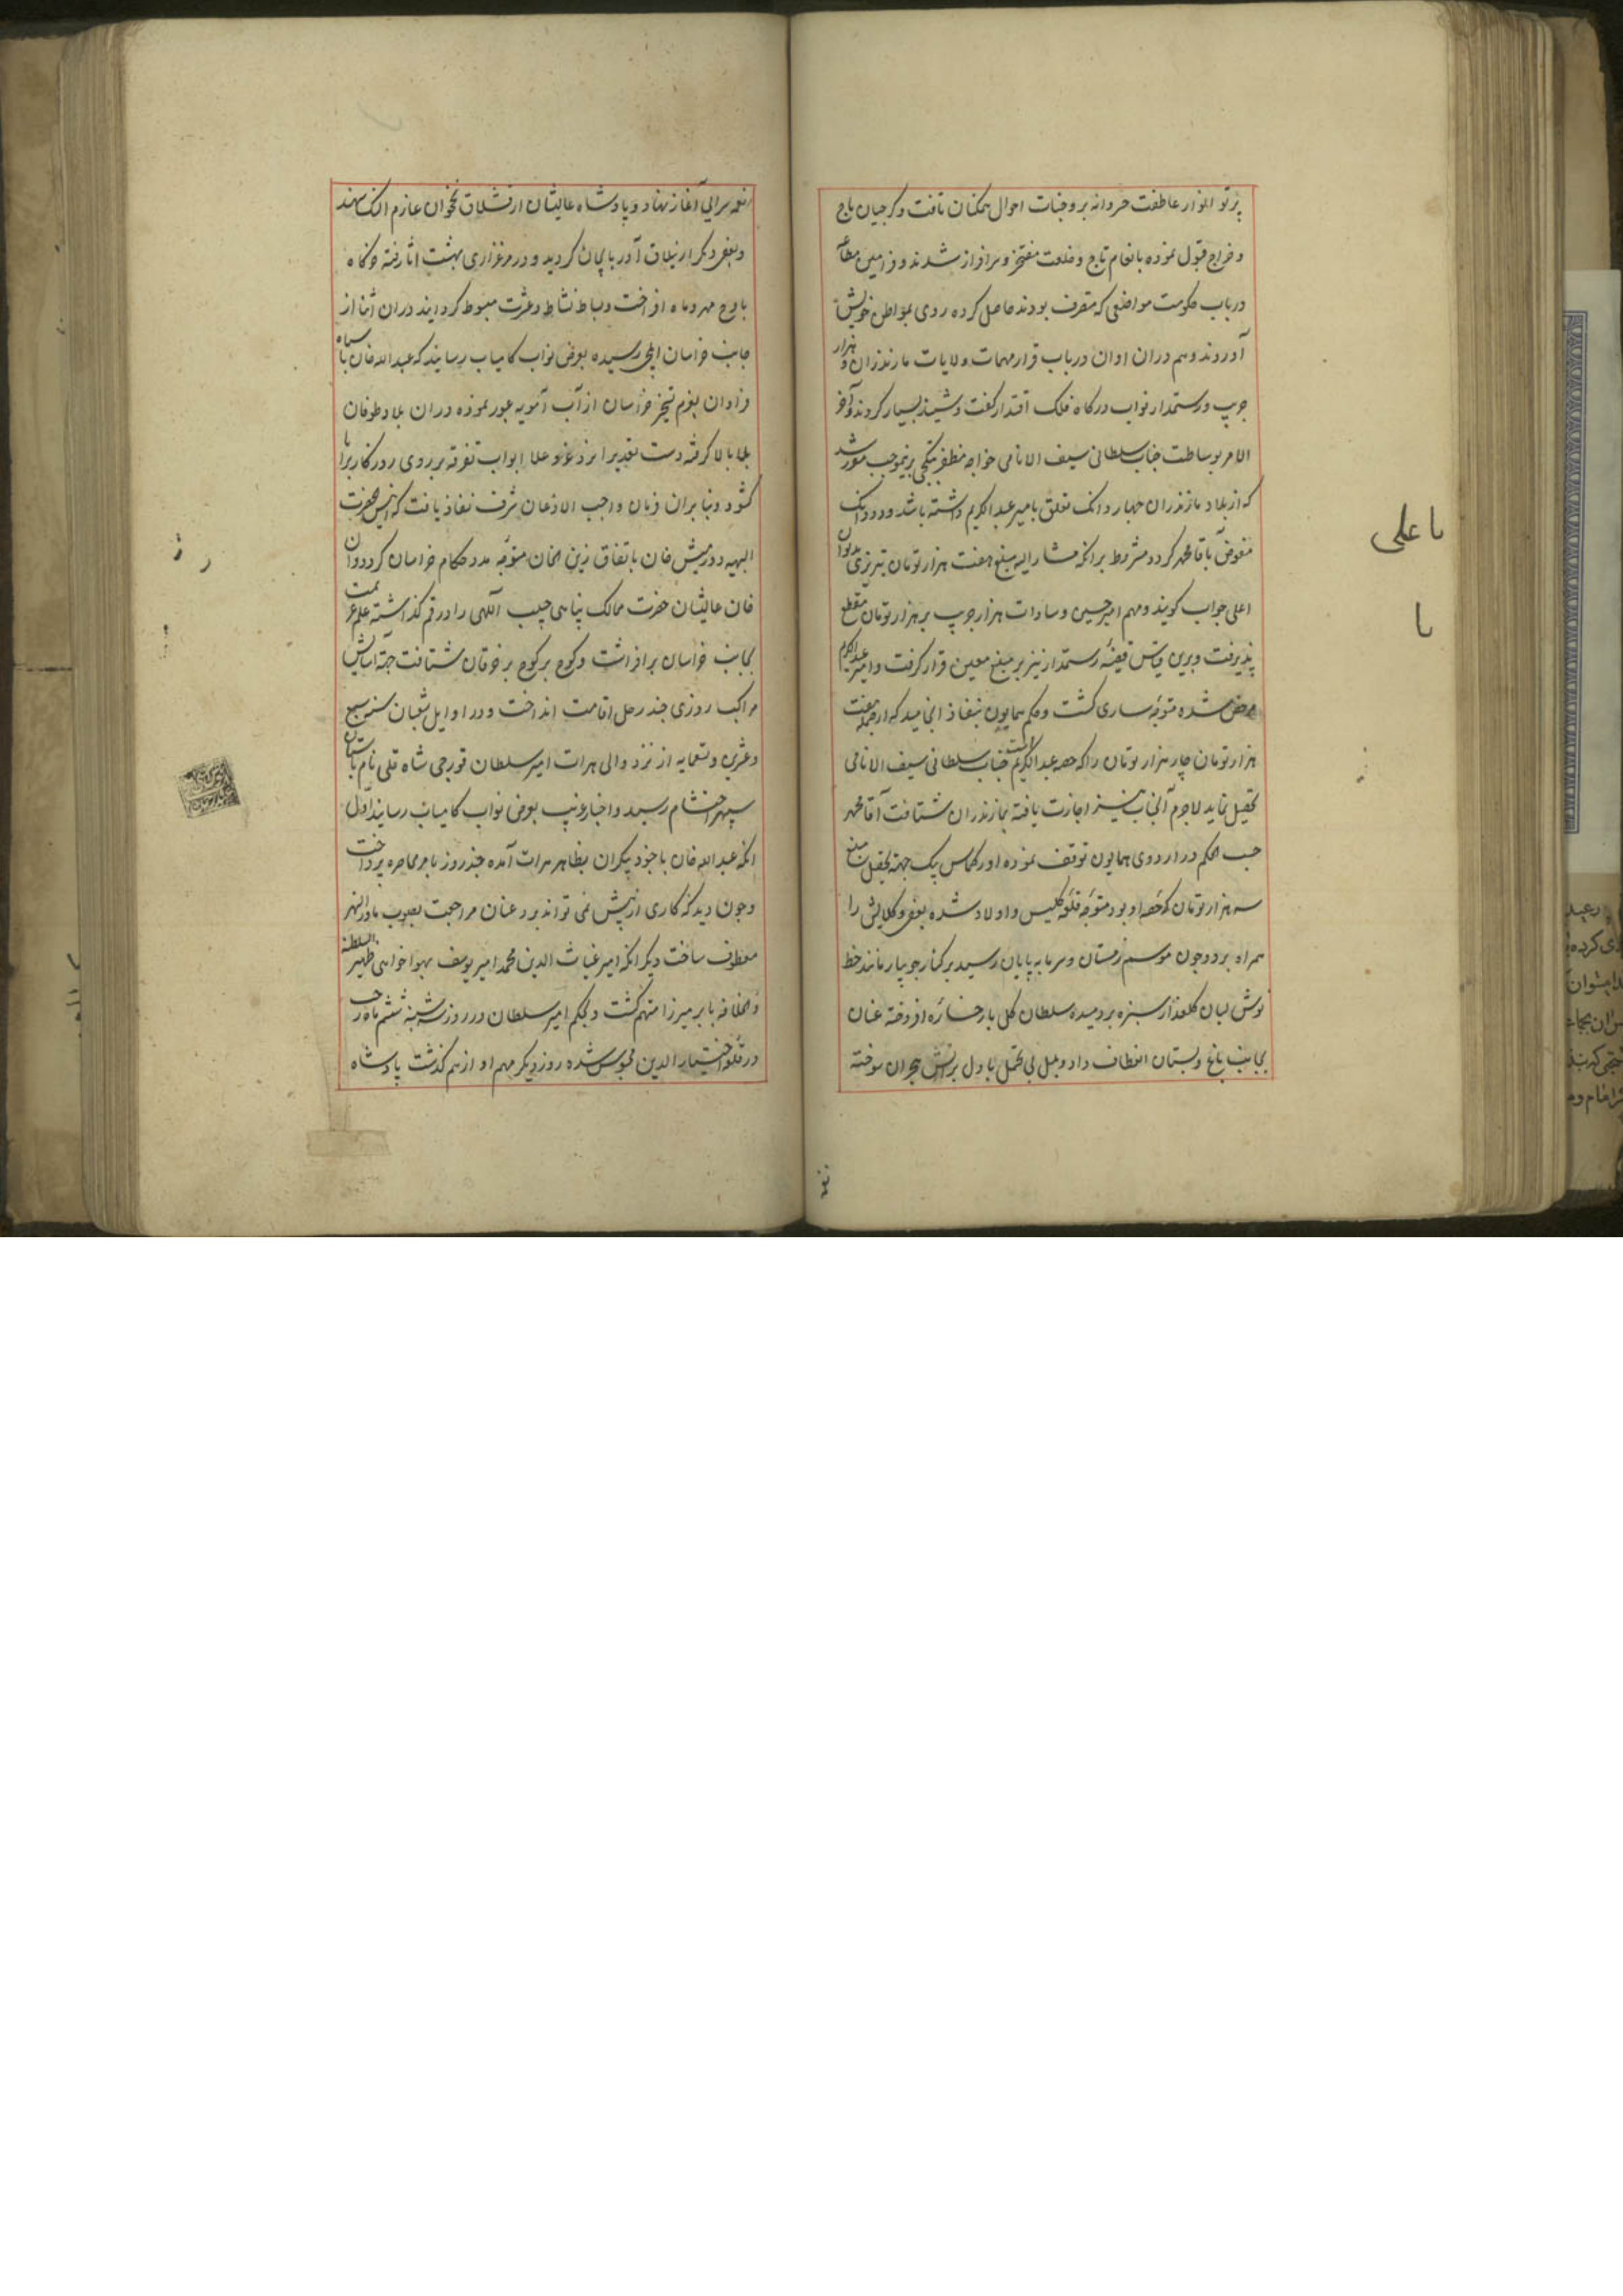 پرتو انوار عاطفت خسروانه بر وجنات احوال همکنان تافت و کرجیان باج
و خراج قبول نموده بانعام تاج و خلعت مفتخر و سرافراز شدند و فرامین مطاع
در باب حکومت مواضعی که متصرف بودند حاصل کرده روی بمواطن خویش
آوردند و هم دران اوان در باب قرار مهمات ولایات مازندران و هزار
جریب و رستمدار نواب درکاه فلک اقتدار کفت و شنید بسیار کردند و آخر
الامر بوساطت جناب سلطانی سیف الانامی خواجه مظفر بتکچی برینموجب مقرر شد
که از بلاد مازندران چهار دانک تعلق بامیر عبدالکریم داشته باشد و دو دانک
مفوض بآقا محمد کردد مشروط برانکه مشار الیه مبلغ هفت هزار تومان تبریزی بدیوان
اعلی جواب کویند و مهم امیر حسین و سادات هزار جریب بر هزار تومان مقطع
پذیرفت و برین قیاس قضیه رستمدار نیز بر مبلغ معین قرار کرفت و امیر عبدالکریم
مرخص شده متوجه ساری کشت و حکم همایون بنفاذ انجامید که از جمله هفت
هزار تومان چار هزار تومان را که حصه عبدالکریم است جناب سلطانی سیف الانامی
تحصیل نماید لاجرم آنجناب نیز اجازت یافته بمازندران شتافت آقا محمد
حسب الحکم در اردوی همایون توقف نموده اورکماس بیک جهة تحصیل مبلغ
سه هزار تومان که حصه او بود متوجه قلعه کلیس و اولاد شده بعضی وکلایش را
همراه برد و چون موسم زمستان و سرما به پایان رسید بر کنار جویبار مانند خط
نوش لبان کلعذار سبزه بردمیده سلطان کل با رخساره افروخته عنان
بجانب باغ و بستان انعطاف داد و بلبل بی تحمل با دل بر آتش هجران سوخته
نغمه
نغمه سرایی آغاز نهاد و پادشاه عالیشان از قشلاق نخجوان عازم النک سهند
و بعضی دیکر از ییلاق آذربایجان کردید و در مرغزاری بهشت اثار قبه خرکاه
باوج مهر و ماه افراخت و بساط نشاط و عشرت مبسوط کردانید دران اثنا از
جانب خراسان ایلچی رسیده بعرض نواب کامیاب رسانید که عبدالله خان با سپاه
فراوان بعزم تسخیر خراسان از آب آمویه عبور نموده دران بلاد طوفان
بلا بالا کرفته دست تقدیر ایزد عز و علا ابواب تفرقه بر روی روزکار برایا
کشود و بنابران فرمان واجب الاذعان شرف نفاذ یافت که انیس الحضرت
البهیه دورمیش خان باتفاق زینل خان متوجه مدد حکام خراسان کردد و آن
خان عالیشان حضرت ممالک پناهی حبیب اللهی را در قم کذاشته علم عزیمت
بجانب خراسان برافراشت و کوچ بر کوچ بر خرقان شتافت جهة آسایش
مراکب روزی چند رحل اقامت انداخت و در اوایل شعبان سنه سبع
و عشرین و تسعمایه از نزد والی هرات امیر سلطان قورچی شاه قلی نام بآستان
سپهر احتشام رسید و اخبار غریب بعرض نواب کامیاب رسانید اول
انکه عبدالله خان با جنود بیکران بظاهر هرات آمده چند روز بامر محاصره پرداخت
و چون دید که کاری از پیش نمی تواند برد عنان مراجعت بصوب ماوراءالنهر
معطوف ساخت دیکر انکه امیر غیاث الدین محمد امیر یوسف بهواخواهی ظهیر السلطنه
و الخلافه بابر میرزا متهم کشت و بحکم امیر سلطان در روز سه شنبه ششم ماه رجب
در قلعه اختیار الدین محبوس شده روز دیکر مهم او از هم کذشت پادشاه
یا علی
یا